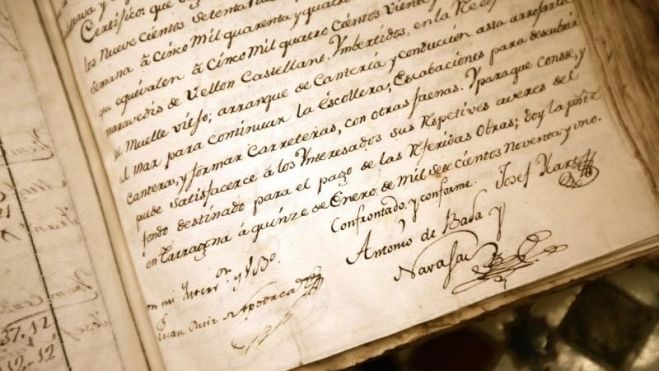 Certifico, que
los Nueve cientos setenta
semana â Cinco Mil quarenta y quatro
que equivalen â Cinco Mil quatro Cientos Vien
maravedis de Vellon Castellano. Ymbertidos, en la Redo
del Muelle viejo; arranque de Cantería y conducion asta arrojarla
al Mar para continuar la Escollera; Escabaciones para descubrir
Canteras, y formar Carreteras, con otras faenas. Y paraque Conste, y
pueda Satisfacerce â los Ynteresados sus Respetives averes del
fondo destinado para el pago de las Referidas Obras; doy la preste
en Tarragona â quinze de Enero de Mil Sete cientos Noventa y uno.
Confrontado, y conforme. Josef
Antonio de Bada y
Navajas
con mi Interv.on y V.o B.o
Juan Ruiz de Apodaca
37-12
12-12